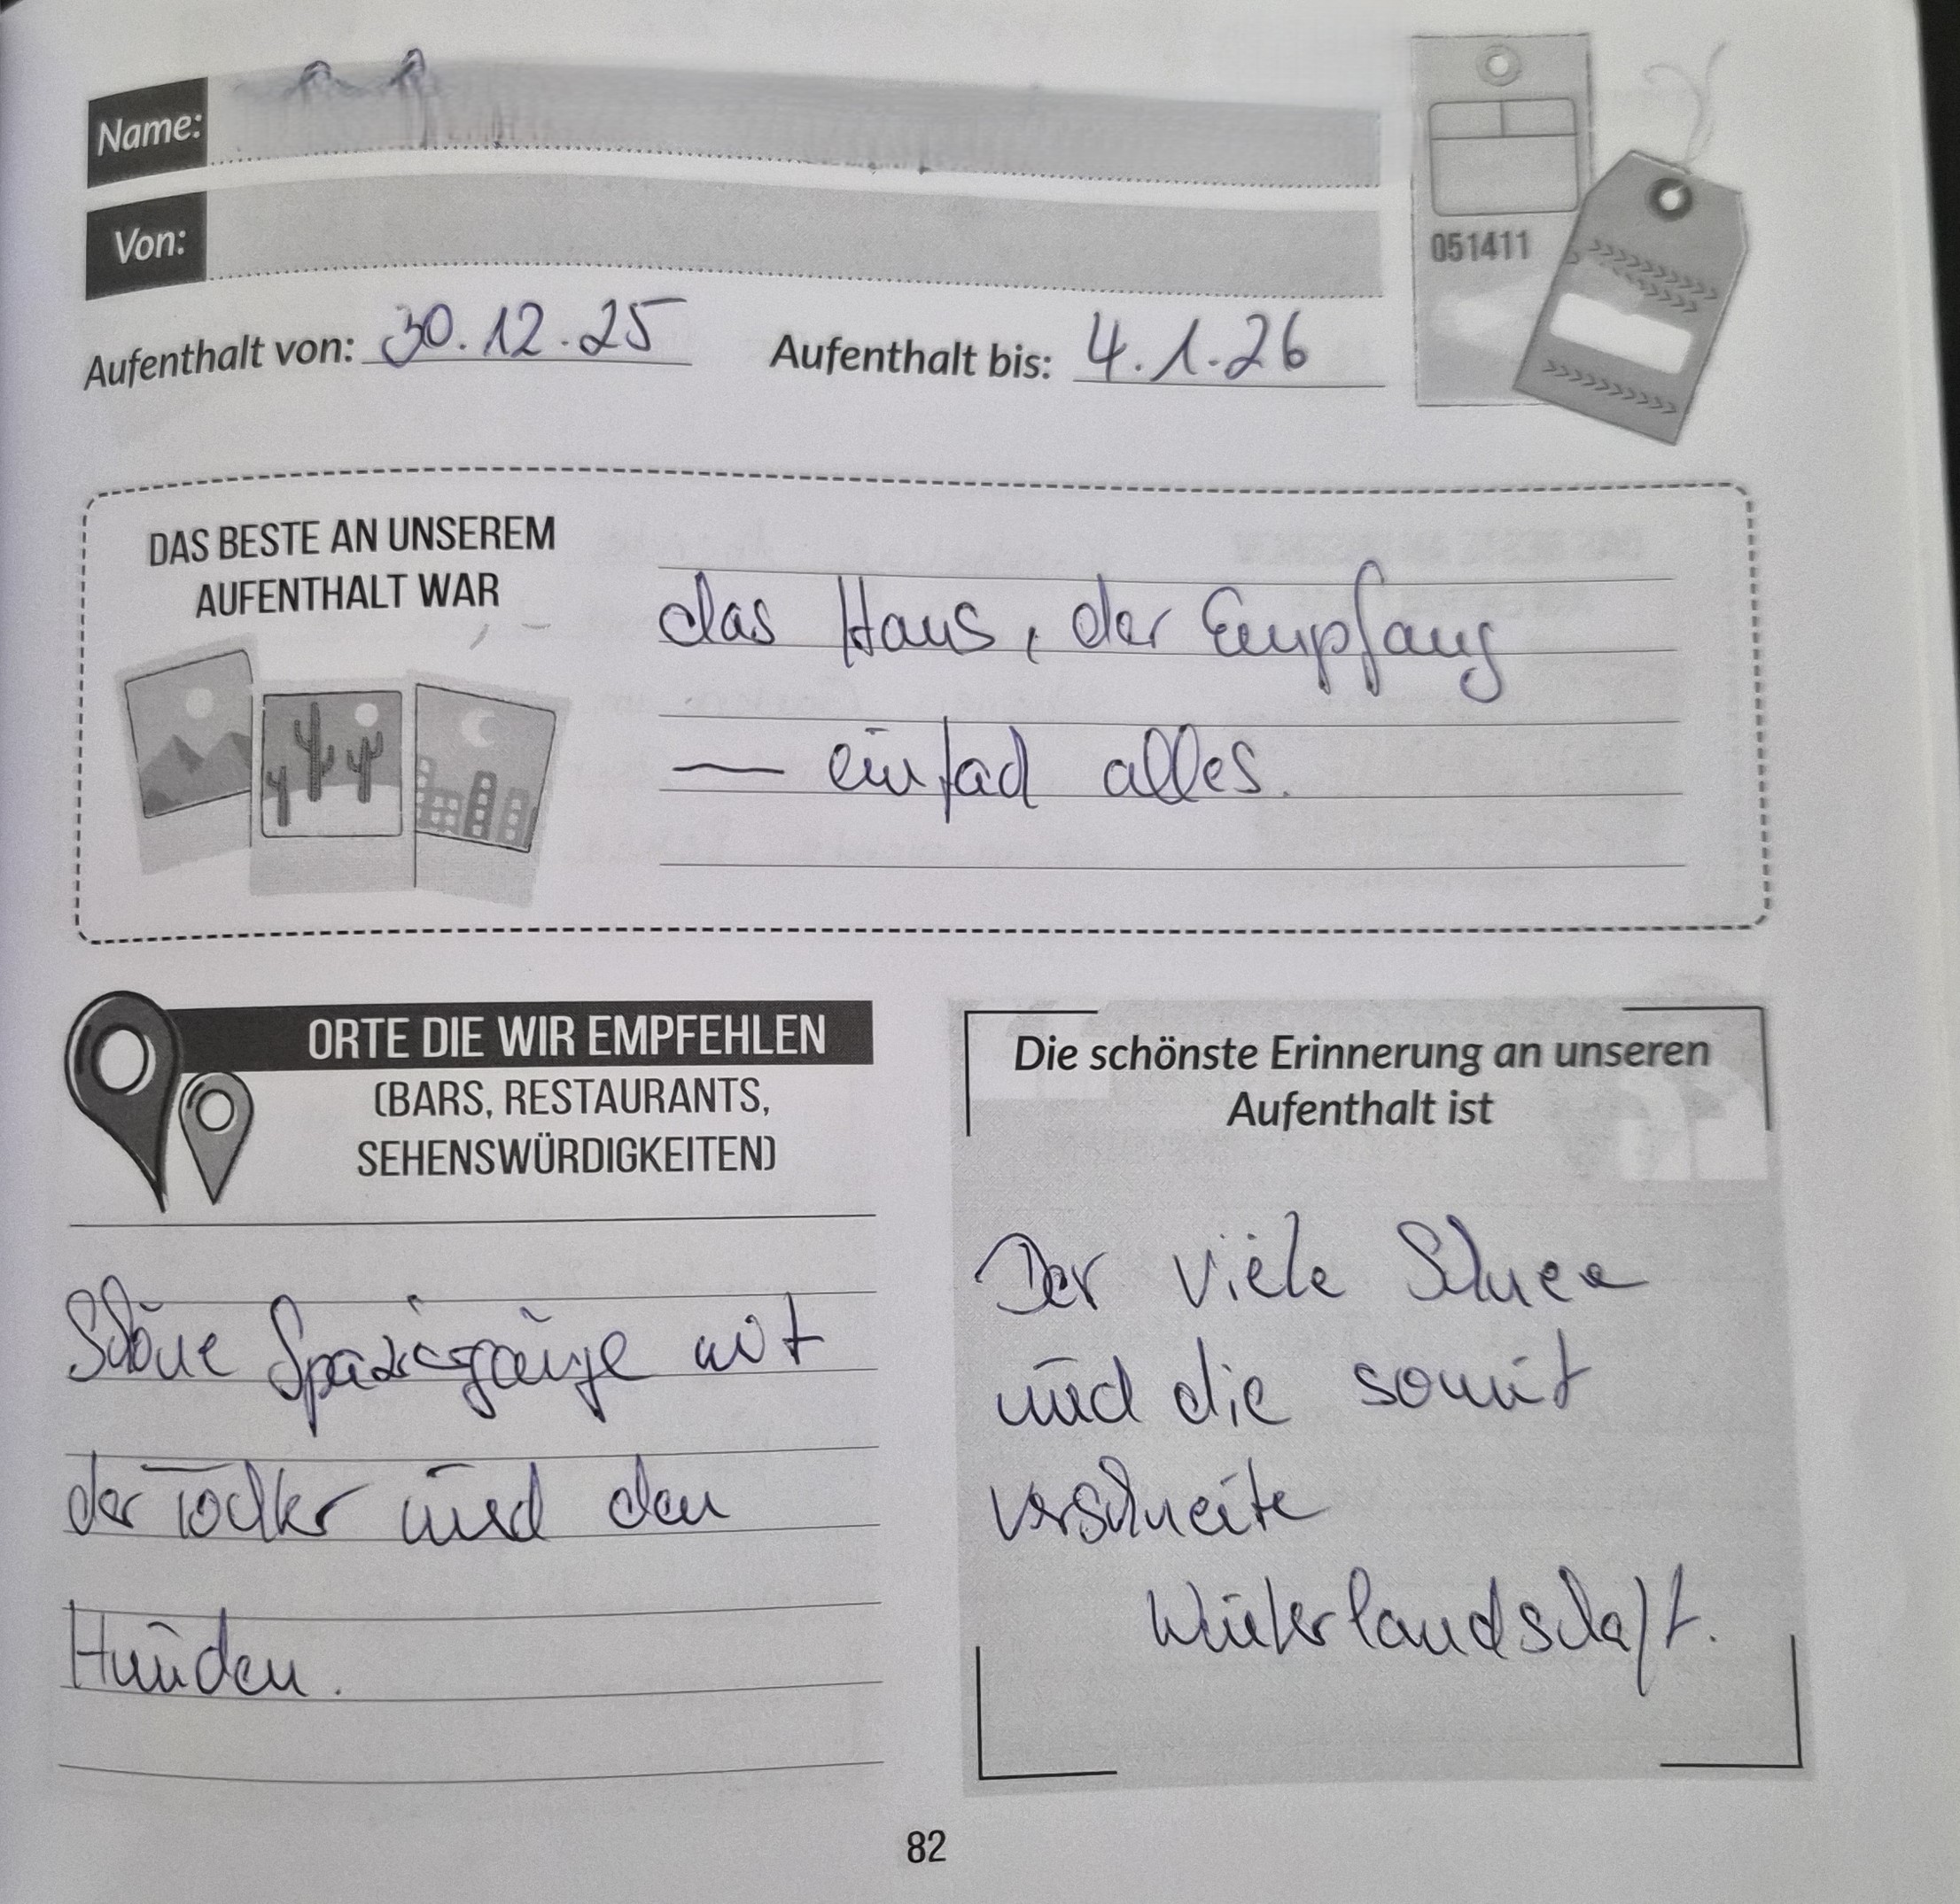 Name:
Von:
Aufenthalt von: 30.12.25 Aufenthalt bis: 4.1.26
051411
DAS BESTE AN UNSEREM
AUFENTHALT WAR
das Haus, der Empfang
— einfach alles.
ORTE DIE WIR EMPFEHLEN
(BARS, RESTAURANTS,
SEHENSWÜRDIGKEITEN)
Schöne Spaziergänge mit
der Tochter und den
Hunden.
Die schönste Erinnerung an unseren
Aufenthalt ist
Der viele Schnee
und die somit
verschneite
Winterlandschaft.
82